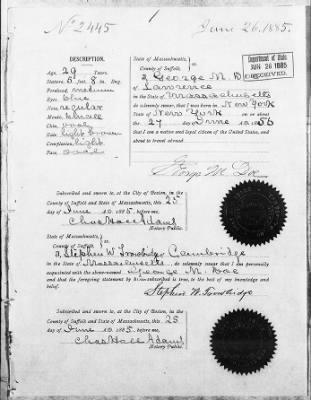 No 2445
June 26. 1885.
Department of State
JUN 26 1885
RECEIVED.
DESCRIPTION.
Age, 29 Years.
Stature, 5 ft 8 in. Eng.
Forehead, medium
Eyes, blue
Nose, regular
Mouth,
Chin, oval
Hair, light brown
Complexion, light
Face, oval
State of Massachusetts,
County of Suffolk,
I George M. D
of Lawrence
in the State of Massachusetts
do solemnly swear, that I was born in New York
State of New York on or about
the 27 day of June 1856
that I am a native and loyal citizen of the United States, and
about to travel abroad
George M. Doe
Subscribed and sworn to, at the City of Boston, in the
County of Suffolk and State of Massachusetts, this 25
day of June 1885, before me,
Chas Hall Adams
Notary Public.
State of Massachusetts,
County of Suffolk,
I, Stephen W. Trowbridge, Cambridge
in the State of Massachusetts, do solemnly swear, that I am personally
acquainted with the above-named George M. Doe
and that the foregoing statement by him subscribed is true, to the best of my knowledge and
belief.
Stephen W. Trowbridge
Subscribed and sworn to, at the City of Boston, in the
County of Suffolk and State of Massachusetts, this 25
day of June 1885, before me,
Chas Hall Adams
Notary Public.